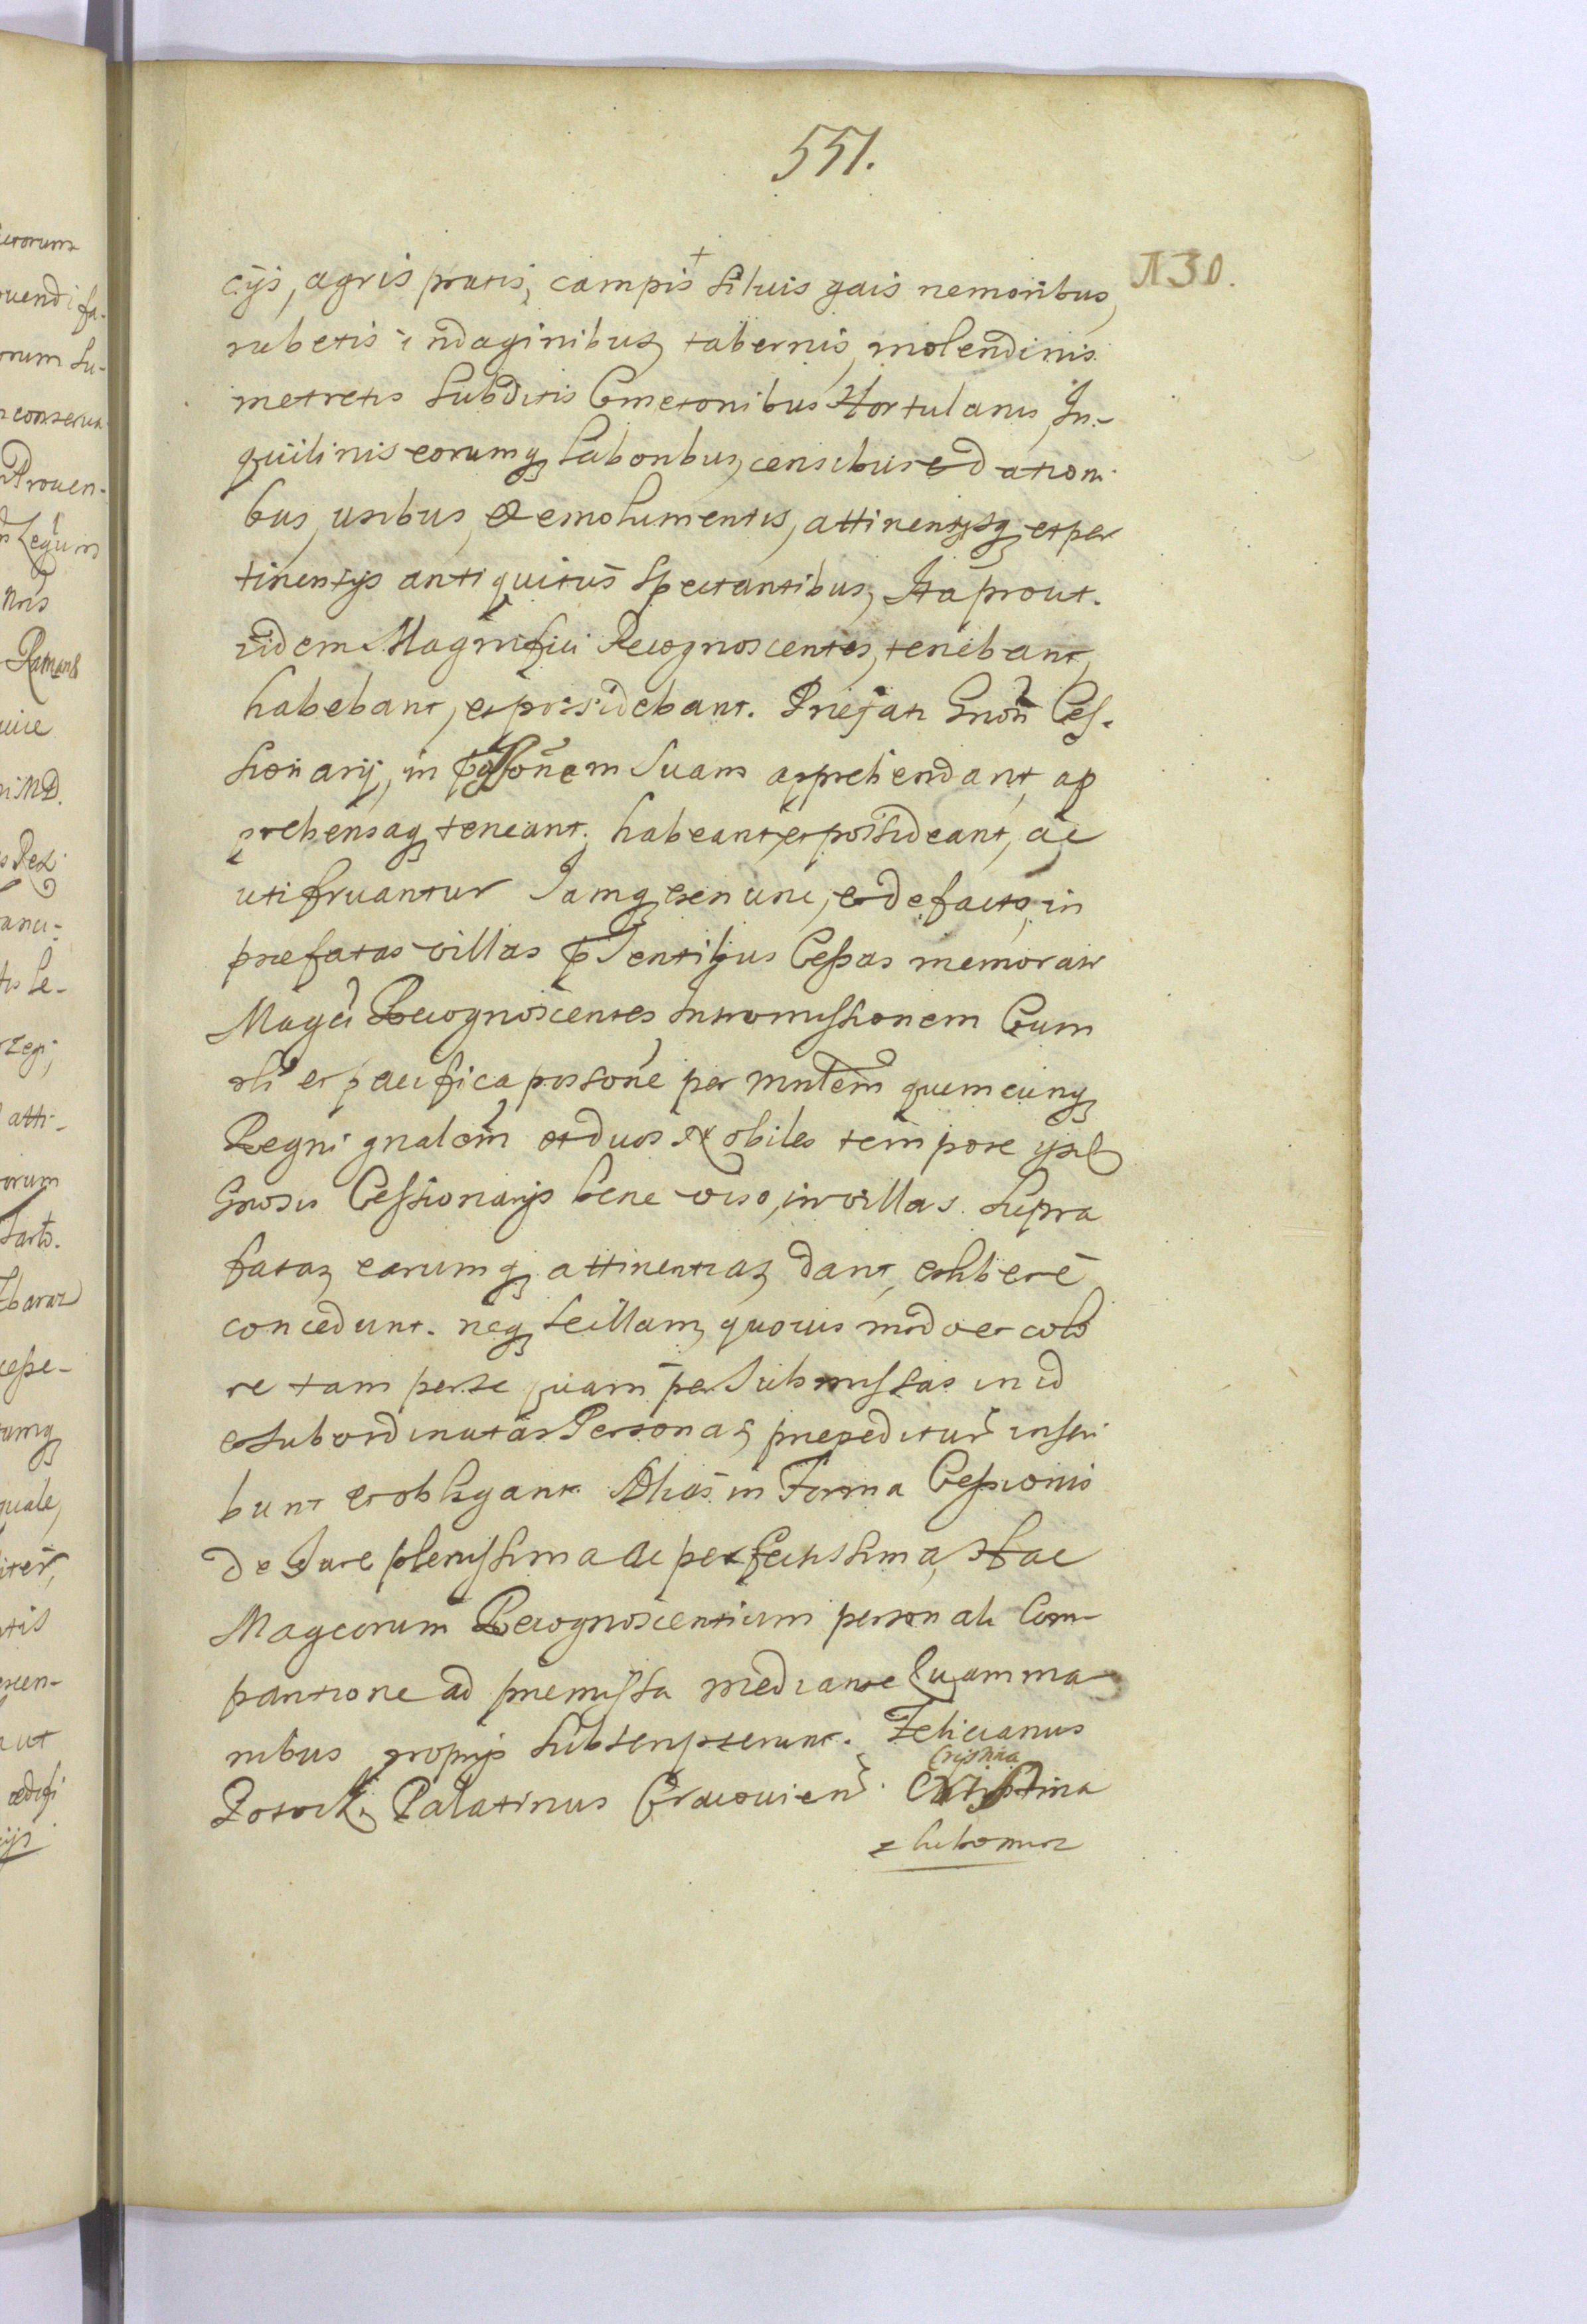 551.
N30.
cijs, agris pratis, campis siluis gais nemoribus,
rubetis indaginibus, tabernis, molendinis
metretis Subditis Cmetonibus Hortulanis, In-
quilinis eorumq, laboribus, censibus et dationi
bus, usibus, et emolumentis, attinentijsq, et per
tinentijs antiquitus spectantibus, Ita prout.
iidem Magnifici Recognoscentes, tenebant,
habebant, et possidebant. Prefati Gnosi Ces-
sionarij, in possonem suam apprehendant, ap
prehensaq, teneant, habeant, et possideant, ac
utifruantur Jamq, ex nunc, et de facto, in
prefatas villas psentibus Cessas memorati
Magci Recognoscentes, Intromissionem Cum
rli et pacifica possone per mnlem quemcunq,
Regni gnalem et duos Nobiles tempore ipsis
Gnosis Cessionarijs bene viso, in villas supra
fatas, earumq, attinentias, dant, et libere
concedunt. neq, se illam, quouis modo et colo
re tam per se quam per submissas in id
et subordinatas Personas, prepedituros inscri
bunt et obligant. Alias in Forma Cessionis
de Jure plenissima ac perfectissima, Hac
Magcorum Recognoscentium personali Com-
paritione ad premissa mediante Quam ma
nibus proprijs subscripserunt. Felicianus
Cristina
Potocki, Palatinus Cracouien.
z Lubomirz